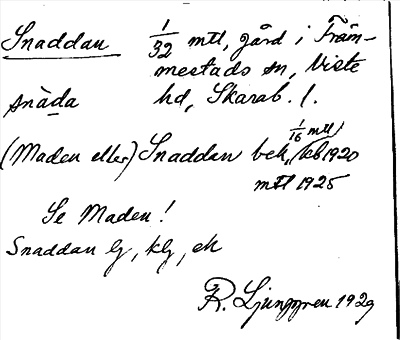 Snaddan 1/32 mtl, gård i Främ-
mestads sn, Viste
snàda hd, Skarab. l.
(Maden eller) Snaddan bek, 1/16 mtl jb 1920
mtl 1925
Se Maden!
Snaddan lg, kg, ek
R. Ljunggren 1929